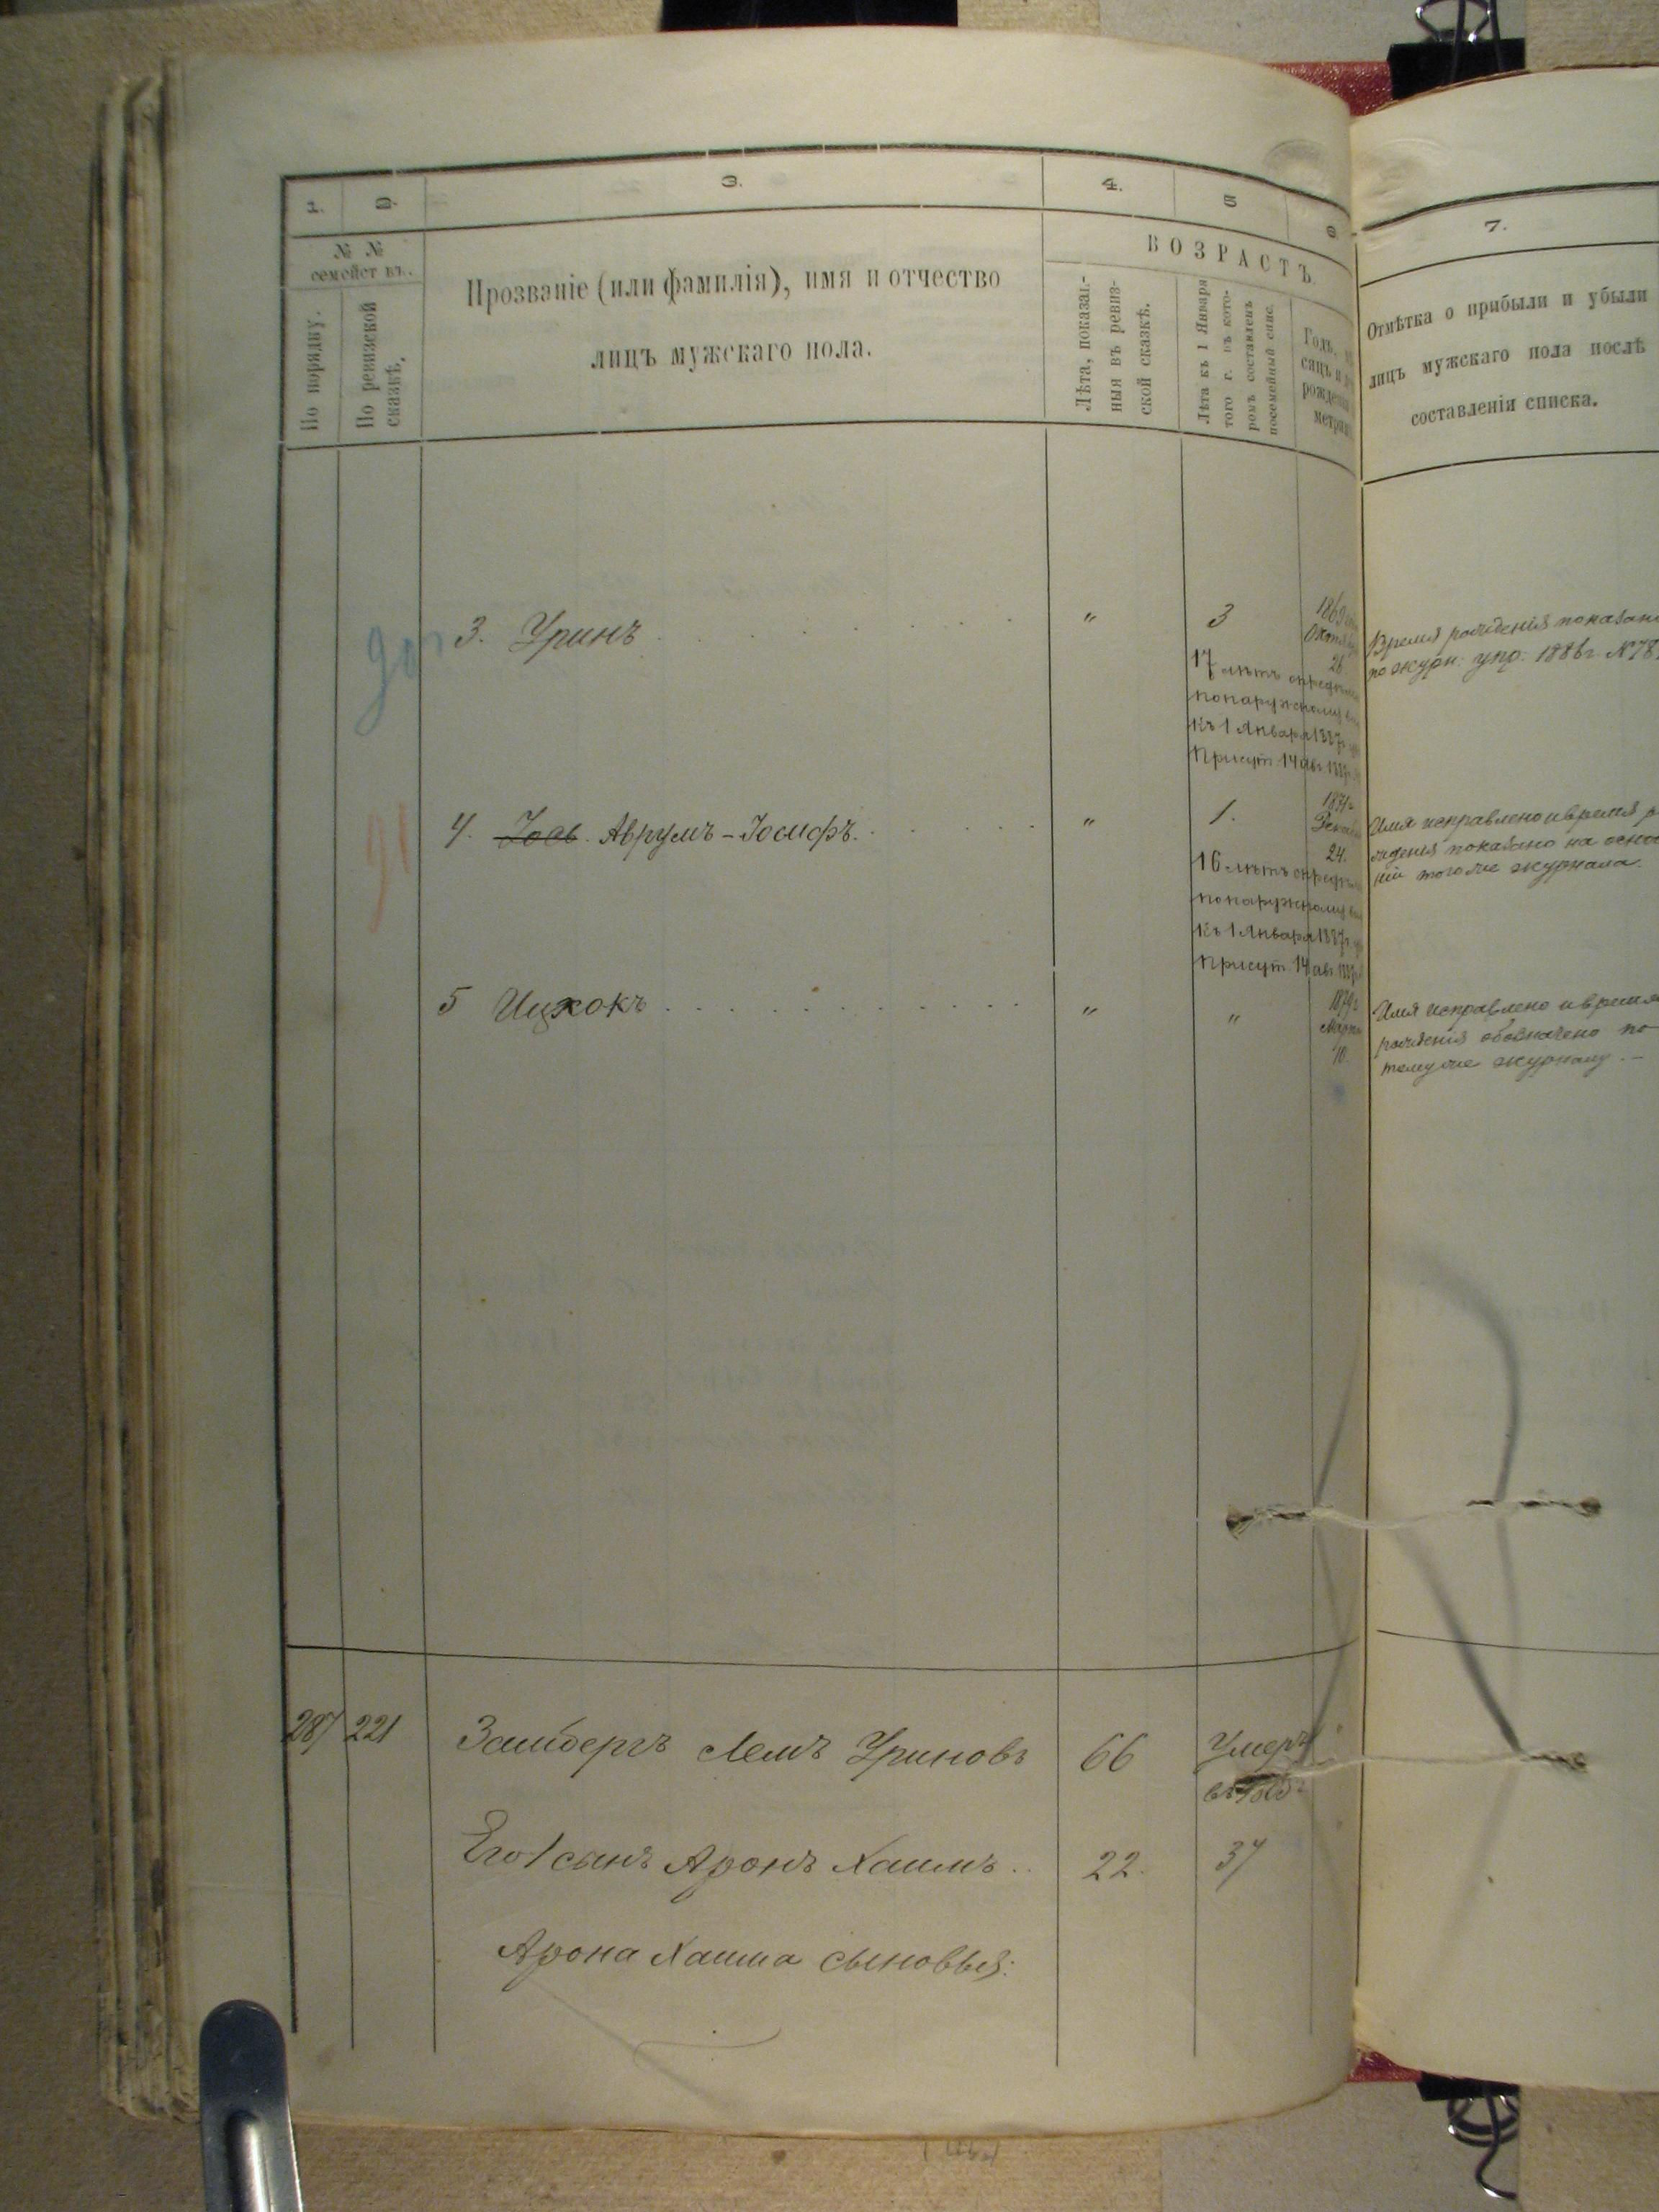 1. 2. 3. 4. 5 6. 7.
№ № семействъ.
По порядку.
По ревизской сказкѣ.
Прозваніе (или фамилія), имя и отчество
лицъ мужскаго пола.
ВОЗРАСТЪ
Лѣта, показан-
ныя въ ревиз-
ской сказкѣ.
Лѣта къ 1 Января
того г. въ кото-
ромъ составленъ
посемейный спис.
Годъ,
сяцъ и
рожден
метрик
Отмѣтка о прибыли и убыли
лицъ мужскаго пола послѣ
составленія списка.
3. Уринъ " 3
1869
Октяб
26
17 лѣтъ опредѣл
понаружному
къ 1 Января 1887г.
Присут. 14 авг. 1887
Время рожденія показан
по журн: упр: 1886г. №78
4. Іось. Аврумъ-Іосифъ. " 1.
1871г
Декаб
24.
16 лѣтъ опредѣл
понаружному
къ 1 Января 1887г.
Присут. 14 авг. 1887
Имя исправлено и время р
жденія показано на осно
ніи тогоже журнала.
5 Ицхокъ " "
1879г
Марта
10.
Имя исправлено и время
рожденія обозначено по
томуже журналу. –
287 221 Замбергъ Лемъ Уриновъ 66 Умеръ
Его 1 сынъ Аронъ Хаимъ 22. 37
Арона Хаима сыновья: